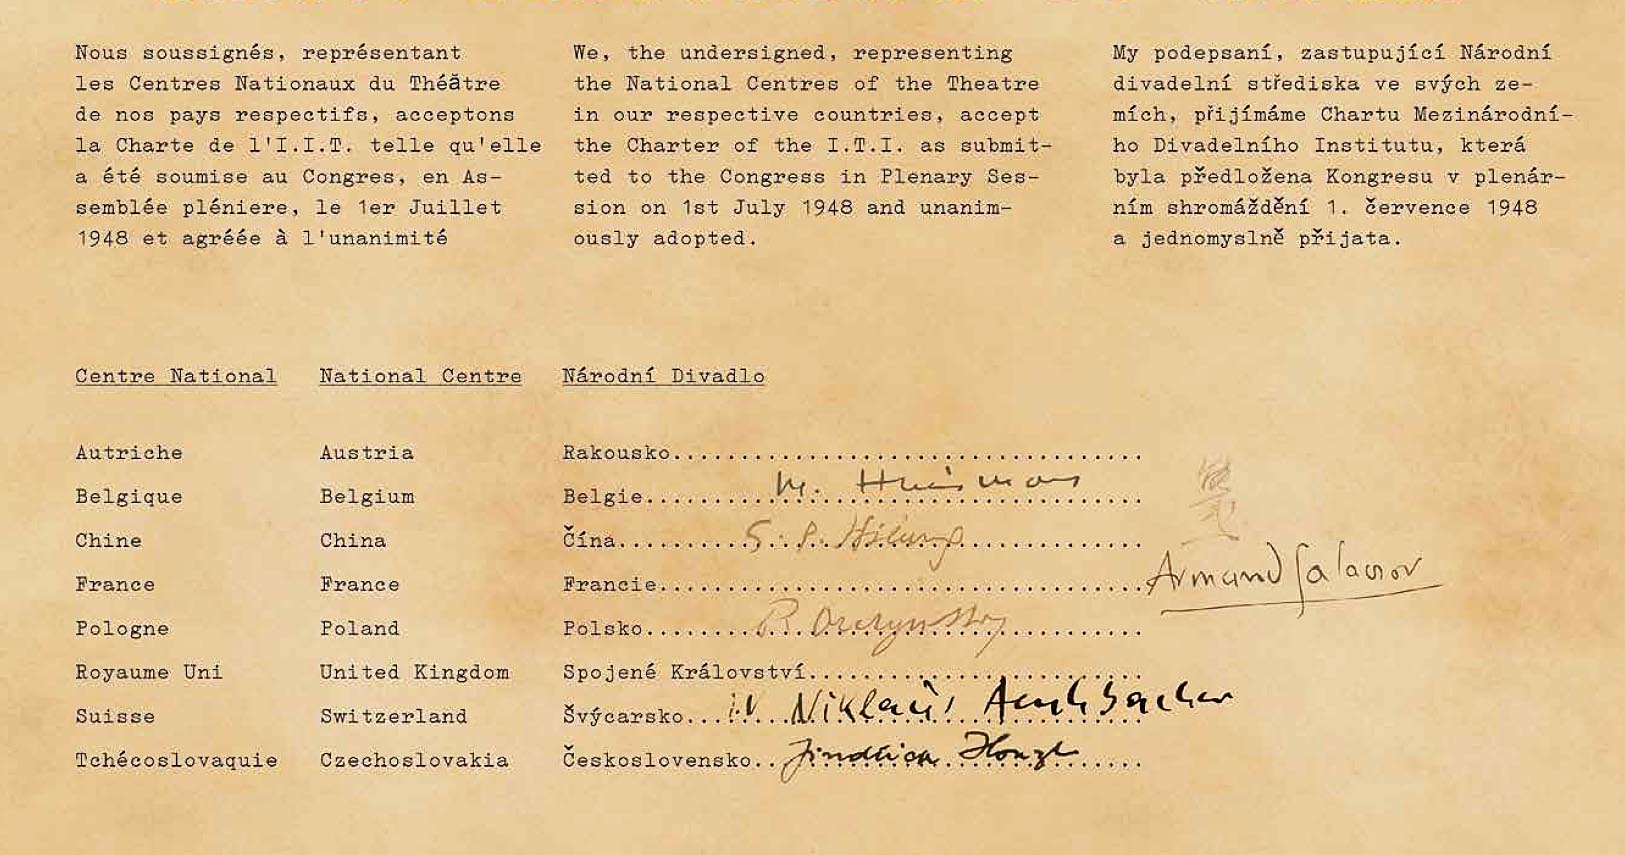 Nous soussignés, représentant
les Centres Nationaux du Théãtre
de nos pays respectifs, acceptons
la Charte de l'I.I.T. telle qu'elle
a été soumise au Congres, en As-
semblée pléniere, le 1er Juillet
1948 et agréée à l'unanimité
We, the undersigned, representing
the National Centres of the Theatre
in our respective countries, accept
the Charter of the I.T.I. as submit-
ted to the Congress in Plenary Ses-
sion on 1st July 1948 and unanim-
ously adopted.
My podepsaní, zastupující Národní
divadelní střediska ve svých ze-
mích, přijímáme Chartu Mezinárodní-
ho Divadelního Institutu, která
byla předložena Kongresu v plenár-
ním shromáždění 1. července 1948
a jednomyslně přijata.
Centre National National Centre Národní Divadlo
Autriche Austria Rakousko
Belgique Belgium Belgie M. Huisman
Chine China Čína S. I. Hsiung
France France Francie Armand Salacrou
Pologne Poland Polsko
Royaume Uni United Kingdom Spojené Království
Suisse Switzerland Švýcarsko Niklaus
Tchécoslovaquie Czechoslovakia Československo Jindřich Honzl